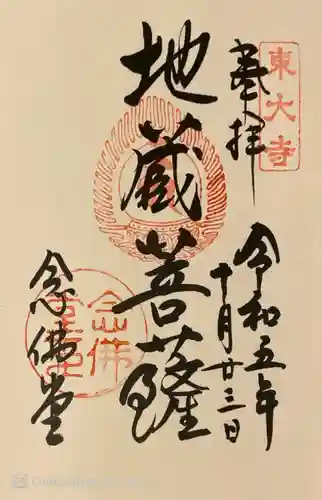 東大寺
奉拝
令和五年
十月廿三日
地蔵菩薩
念佛堂
念佛